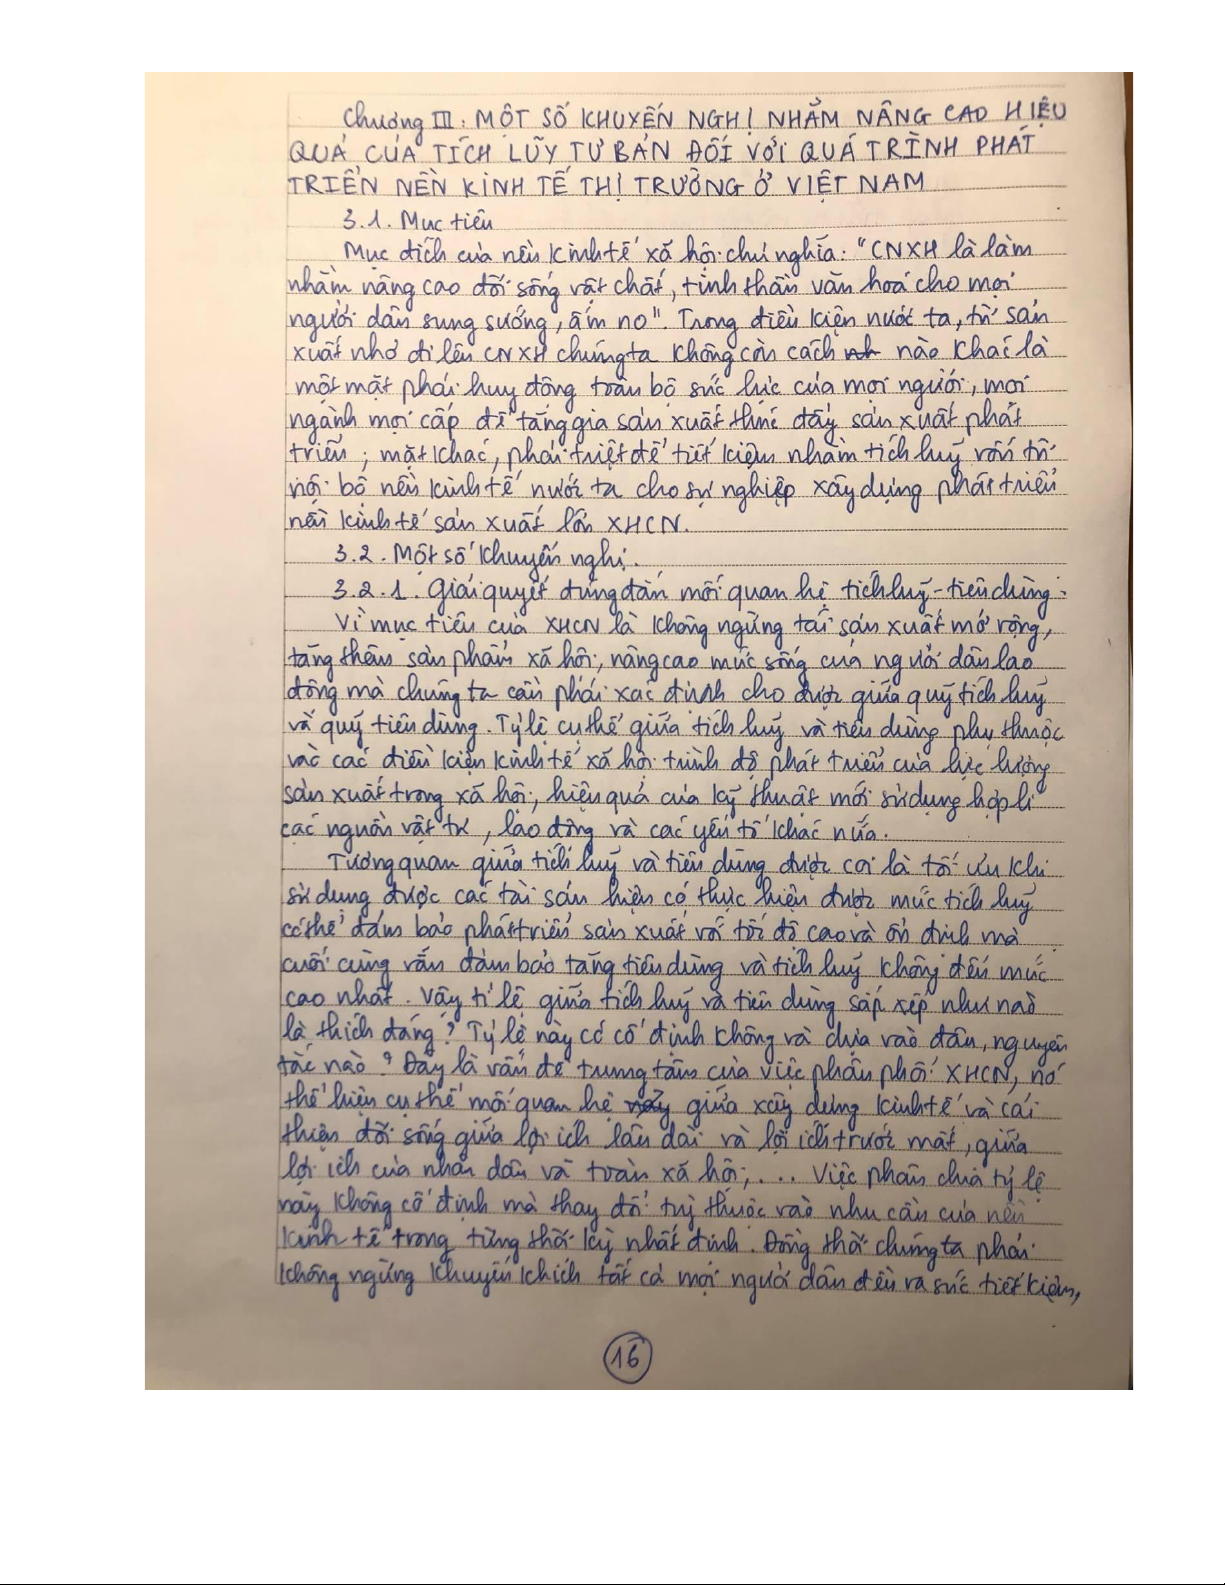 Chương III: MỘT SỐ KHUYẾN NGHỊ NHẰM NÂNG CAO HIỆU
QUẢ CỦA TÍCH LŨY TƯ BẢN ĐỐI VỚI QUÁ TRÌNH PHÁT
TRIỂN NỀN KINH TẾ THỊ TRƯỜNG Ở VIỆT NAM
3.1. Mục tiêu
Mục đích của nền kinh tế xã hội chủ nghĩa: "CNXH là làm
nhằm nâng cao đời sống vật chất, tinh thần văn hoá cho mọi
người dân sung sướng, ấm no". Trong điều kiện nước ta, từ sản
xuất nhỏ đi lên CNXH chúng ta không còn cách nào khác là
một mặt phải huy động toàn bộ sức lực của mọi người, mọi
ngành mọi cấp để tăng gia sản xuất thúc đẩy sản xuất phát
triển; mặt khác, phải triệt để tiết kiệm nhằm tích luỹ vốn từ
nội bộ nền kinh tế nước ta cho sự nghiệp xây dựng phát triển
nền kinh tế sản xuất lớn XHCN.
3.2. Một số khuyến nghị.
3.2.1. Giải quyết đúng đắn mối quan hệ tích luỹ - tiêu dùng.
Vì mục tiêu của XHCN là không ngừng tái sản xuất mở rộng,
tăng thêm sản phẩm xã hội, nâng cao mức sống của người dân lao
động mà chúng ta cần phải xác định cho được giữa quỹ tích luỹ
và quỹ tiêu dùng. Tỷ lệ cụ thể giữa tích luỹ và tiêu dùng phụ thuộc
vào các điều kiện kinh tế xã hội trình độ phát triển của lực lượng
sản xuất trong xã hội, hiệu quả của kỹ thuật mới sử dụng hợp lí
các nguồn vật tư, lao động và các yếu tố khác nữa.
Tương quan giữa tích luỹ và tiêu dùng được coi là tối ưu khi
sử dụng được các tài sản hiện có thực hiện được mức tích luỹ
có thể đảm bảo phát triển sản xuất với tốc độ cao và ổn định mà
cuối cùng vẫn đảm bảo tăng tiêu dùng và tích luỹ không đến mức
cao nhất. Vậy tỉ lệ giữa tích luỹ và tiêu dùng sắp xếp như nào
là thích đáng? Tỷ lệ này có cố định không và dựa vào đâu, nguyên
tắc nào? Đây là vấn đề trung tâm của việc phân phối XHCN, nó
thể hiện cụ thể mối quan hệ giữa xây dựng kinh tế và cải
thiện đời sống giữa lợi ích lâu dài và lợi ích trước mắt, giữa
lợi ích của nhân dân và toàn xã hội;... Việc phân chia tỷ lệ
này không cố định mà thay đổi tuỳ thuộc vào nhu cầu của nền
kinh tế trong từng thời kỳ nhất định. Đồng thời chúng ta phải
không ngừng khuyến khích tất cả mọi người dân đều ra sức tiết kiệm,
16